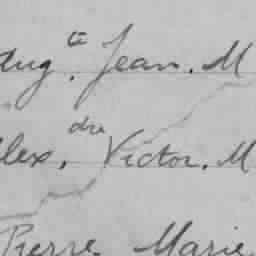 Aug.te Jean. M
Alex.dre Victor. M
Pierre Marie